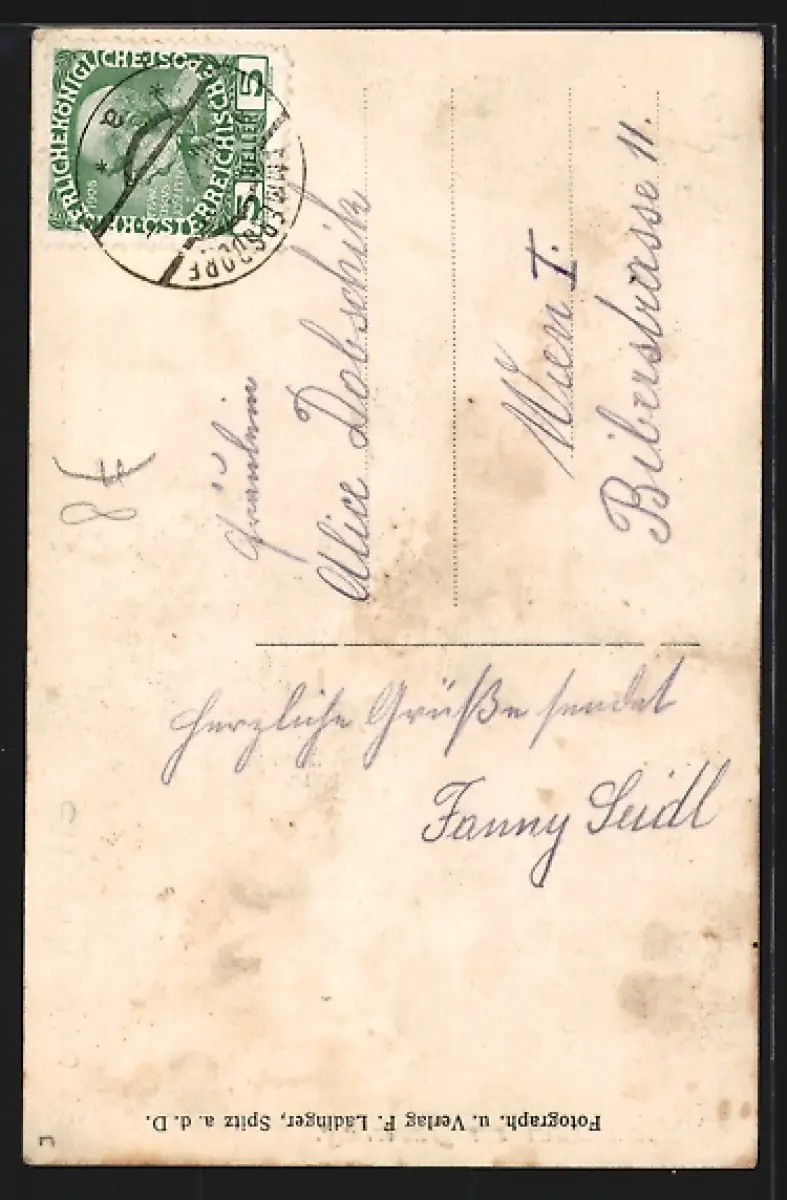 KAISERLICHE KÖNIGLICHE ÖSTERREICHISCHE
5 HELLER 5
1908
8
8 €
Fräulein
Alice Dobschik
Wien I.
Biberstrasse 11.
Herzliche Grüße sendet
Fanny Seidl
Fotograph. u. Verlag F. Lädinger, Spitz a. d. D.